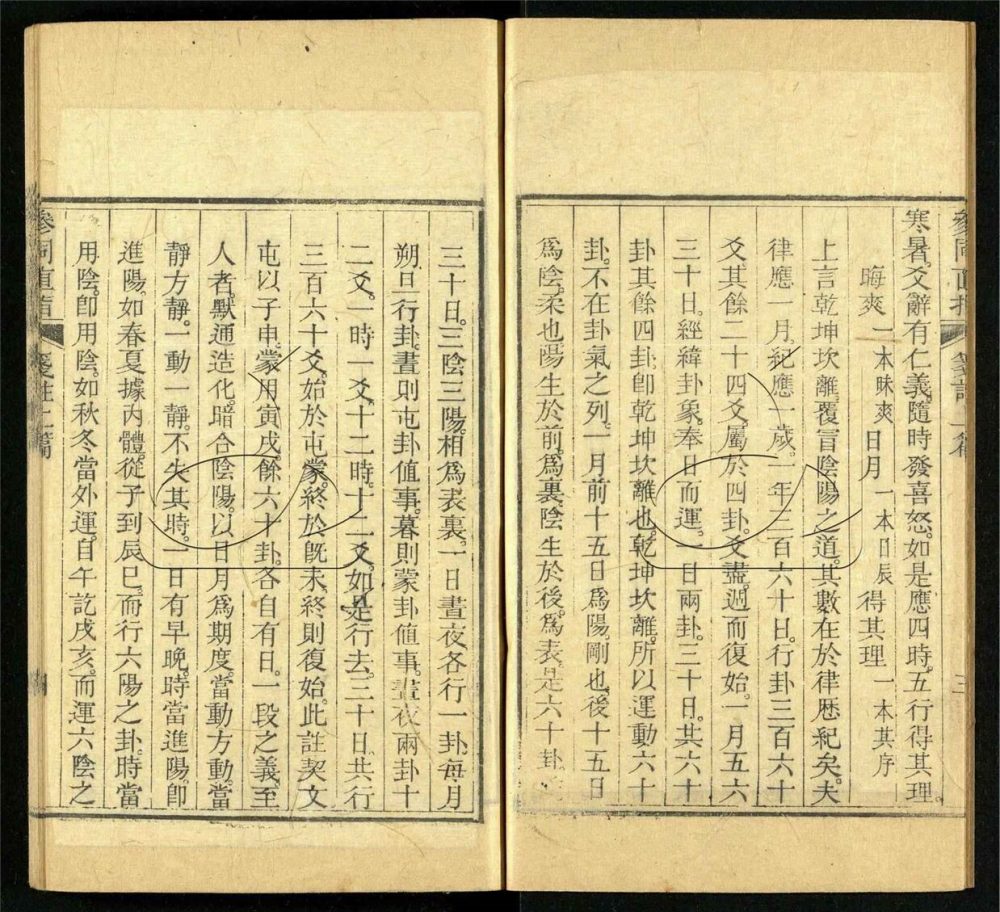 參同直指
箋註上篇
三
寒暑。爻辭有仁義。隨時發喜怒。如是應四時。五行得其理。
晦爽 一本昧爽 日月 一本日辰 得其理 一本其序
上言乾坤坎離。覆言陰陽之道。其數在於律歷紀矣。夫
律應一月。紀應一歲。一年三百六十日。行卦三百六十
爻。其餘二十四爻。屬於四卦。爻盡。週而復始。一月五六
三十日。經緯卦象。奉日而運。一日兩卦。三十日。共六十
卦。其餘四卦。卽乾坤坎離也。乾坤坎離。所以運動六十
卦。不在卦氣之列。一月前十五日爲陽。剛也。後十五日
爲陰。柔也。陽生於前。爲裏。陰生於後。爲表。是六十卦
三十日。三陰三陽。相爲表裏。一日晝夜。各行一卦。每月
朔旦行卦。晝則屯卦值事。暮則蒙卦值事。晝夜兩卦十
二爻。一時一爻。十二時。十二爻。如是行去。三十日。共行
三百六十爻。始於屯蒙。終於旣未。終則復始。此註契文
屯以子申。蒙用寅戌。餘六十卦。各自有日。一段之義。至
人者。默通造化。暗合陰陽。以日月爲期度。當動方動。當
靜方靜。一動一靜。不失其時。一日有早晚。時當進陽。卽
進陽。如春夏據內體。從子到辰巳。而行六陽之卦。時當
用陰。卽用陰。如秋冬當外運。自午訖戌亥。而運六陰之
參同直指
箋註上篇
四